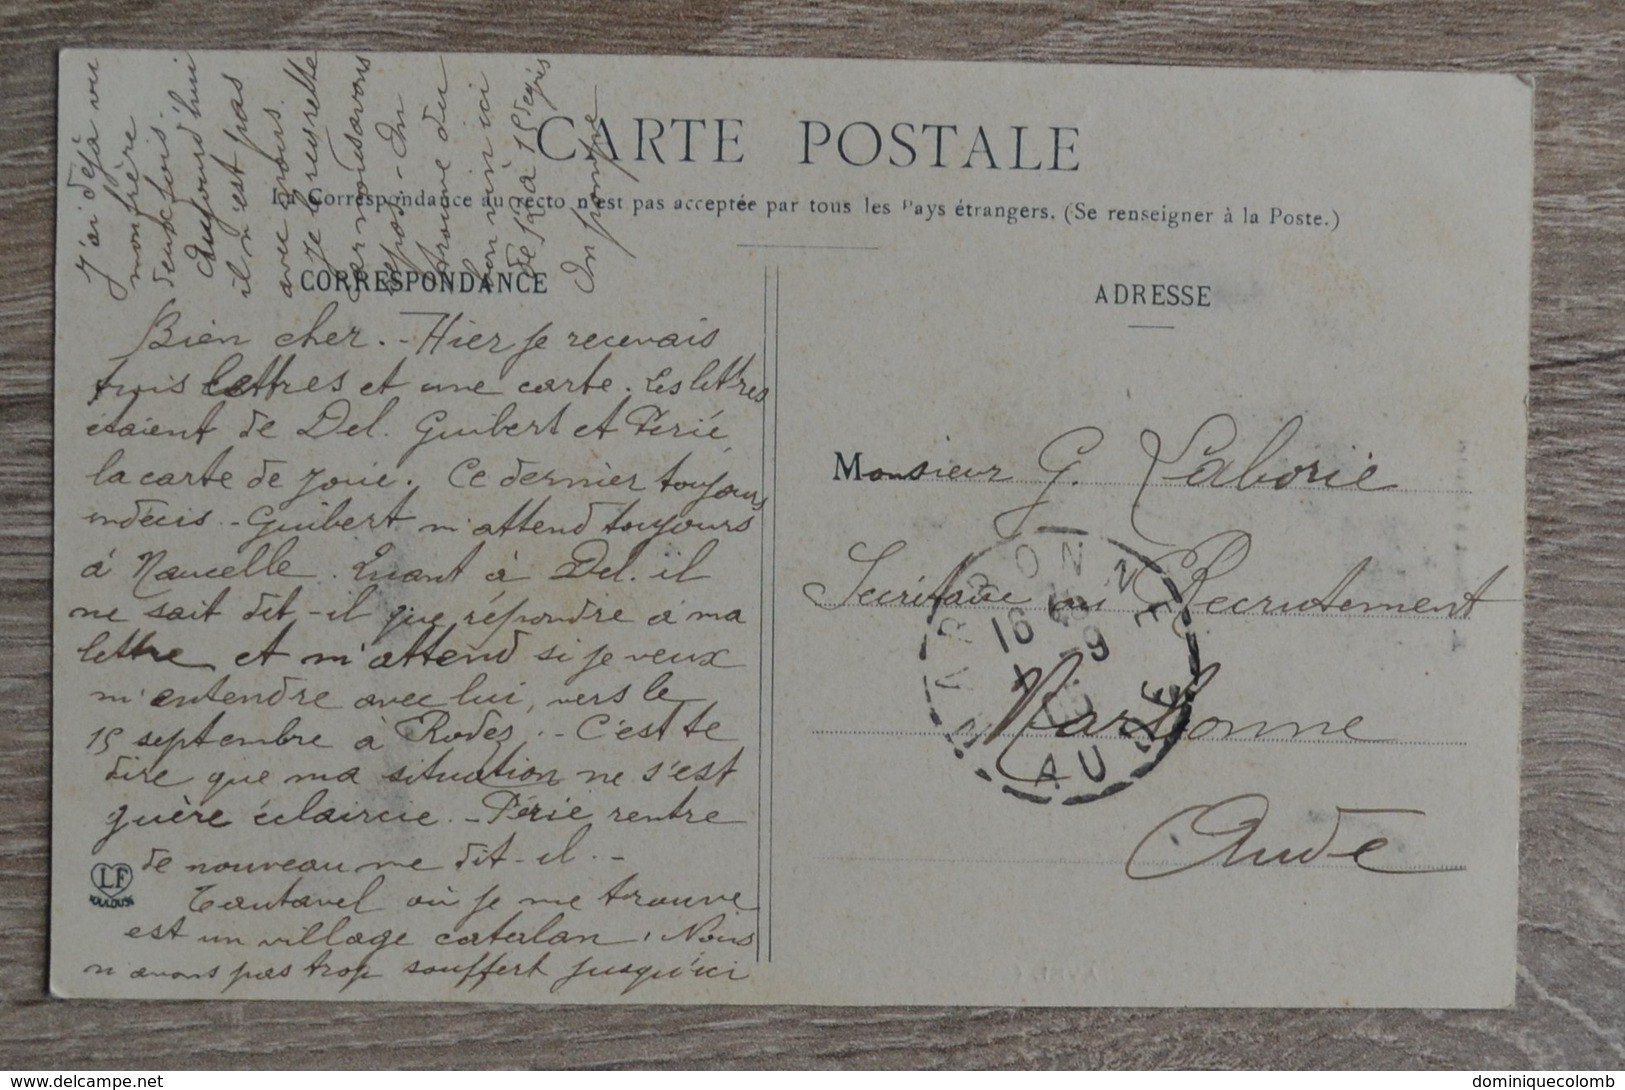 CARTE POSTALE
La Correspondance au recto n'est pas acceptée par tous les Pays étrangers. (Se renseigner à la Poste.)
CORRESPONDANCE
Bien cher. - Hier je recevais
trois lettres et une carte. Les lettres
étaient de Del. Guibert et Périé
la carte de Jouie. Ce dernier toujours
indécis. - Guibert m'attend toujours
à Naucelle. Quant à Del. il
ne sait dit-il que répondre à ma
lettre et m'attend si je veux
m'entendre avec lui, vers le
15 septembre à Rodez. - C'est te
dire que ma situation ne s'est
guère éclaircie. - Périé rentre
de nouveau me dit-il. -
Tautavel où je me trouve
est un village catalan. Nous
n'avons pas trop souffert jusqu'ici
J'ai déjà vu
mon frère
deux fois.
Aujourd'hui
il n'est pas
avec nous.
Je le regrette
car nous avons
repos - On
trouve du
bon vin ici
de 12 à 15 degrés
On pompe
LF
TOULOUSE
ADRESSE
Monsieur G. Laborie
Secrétaire au Recrutement
Narbonne
Aude
NARBONNE
16
-9
AUDE
www.delcampe.net
dominiquecolomb